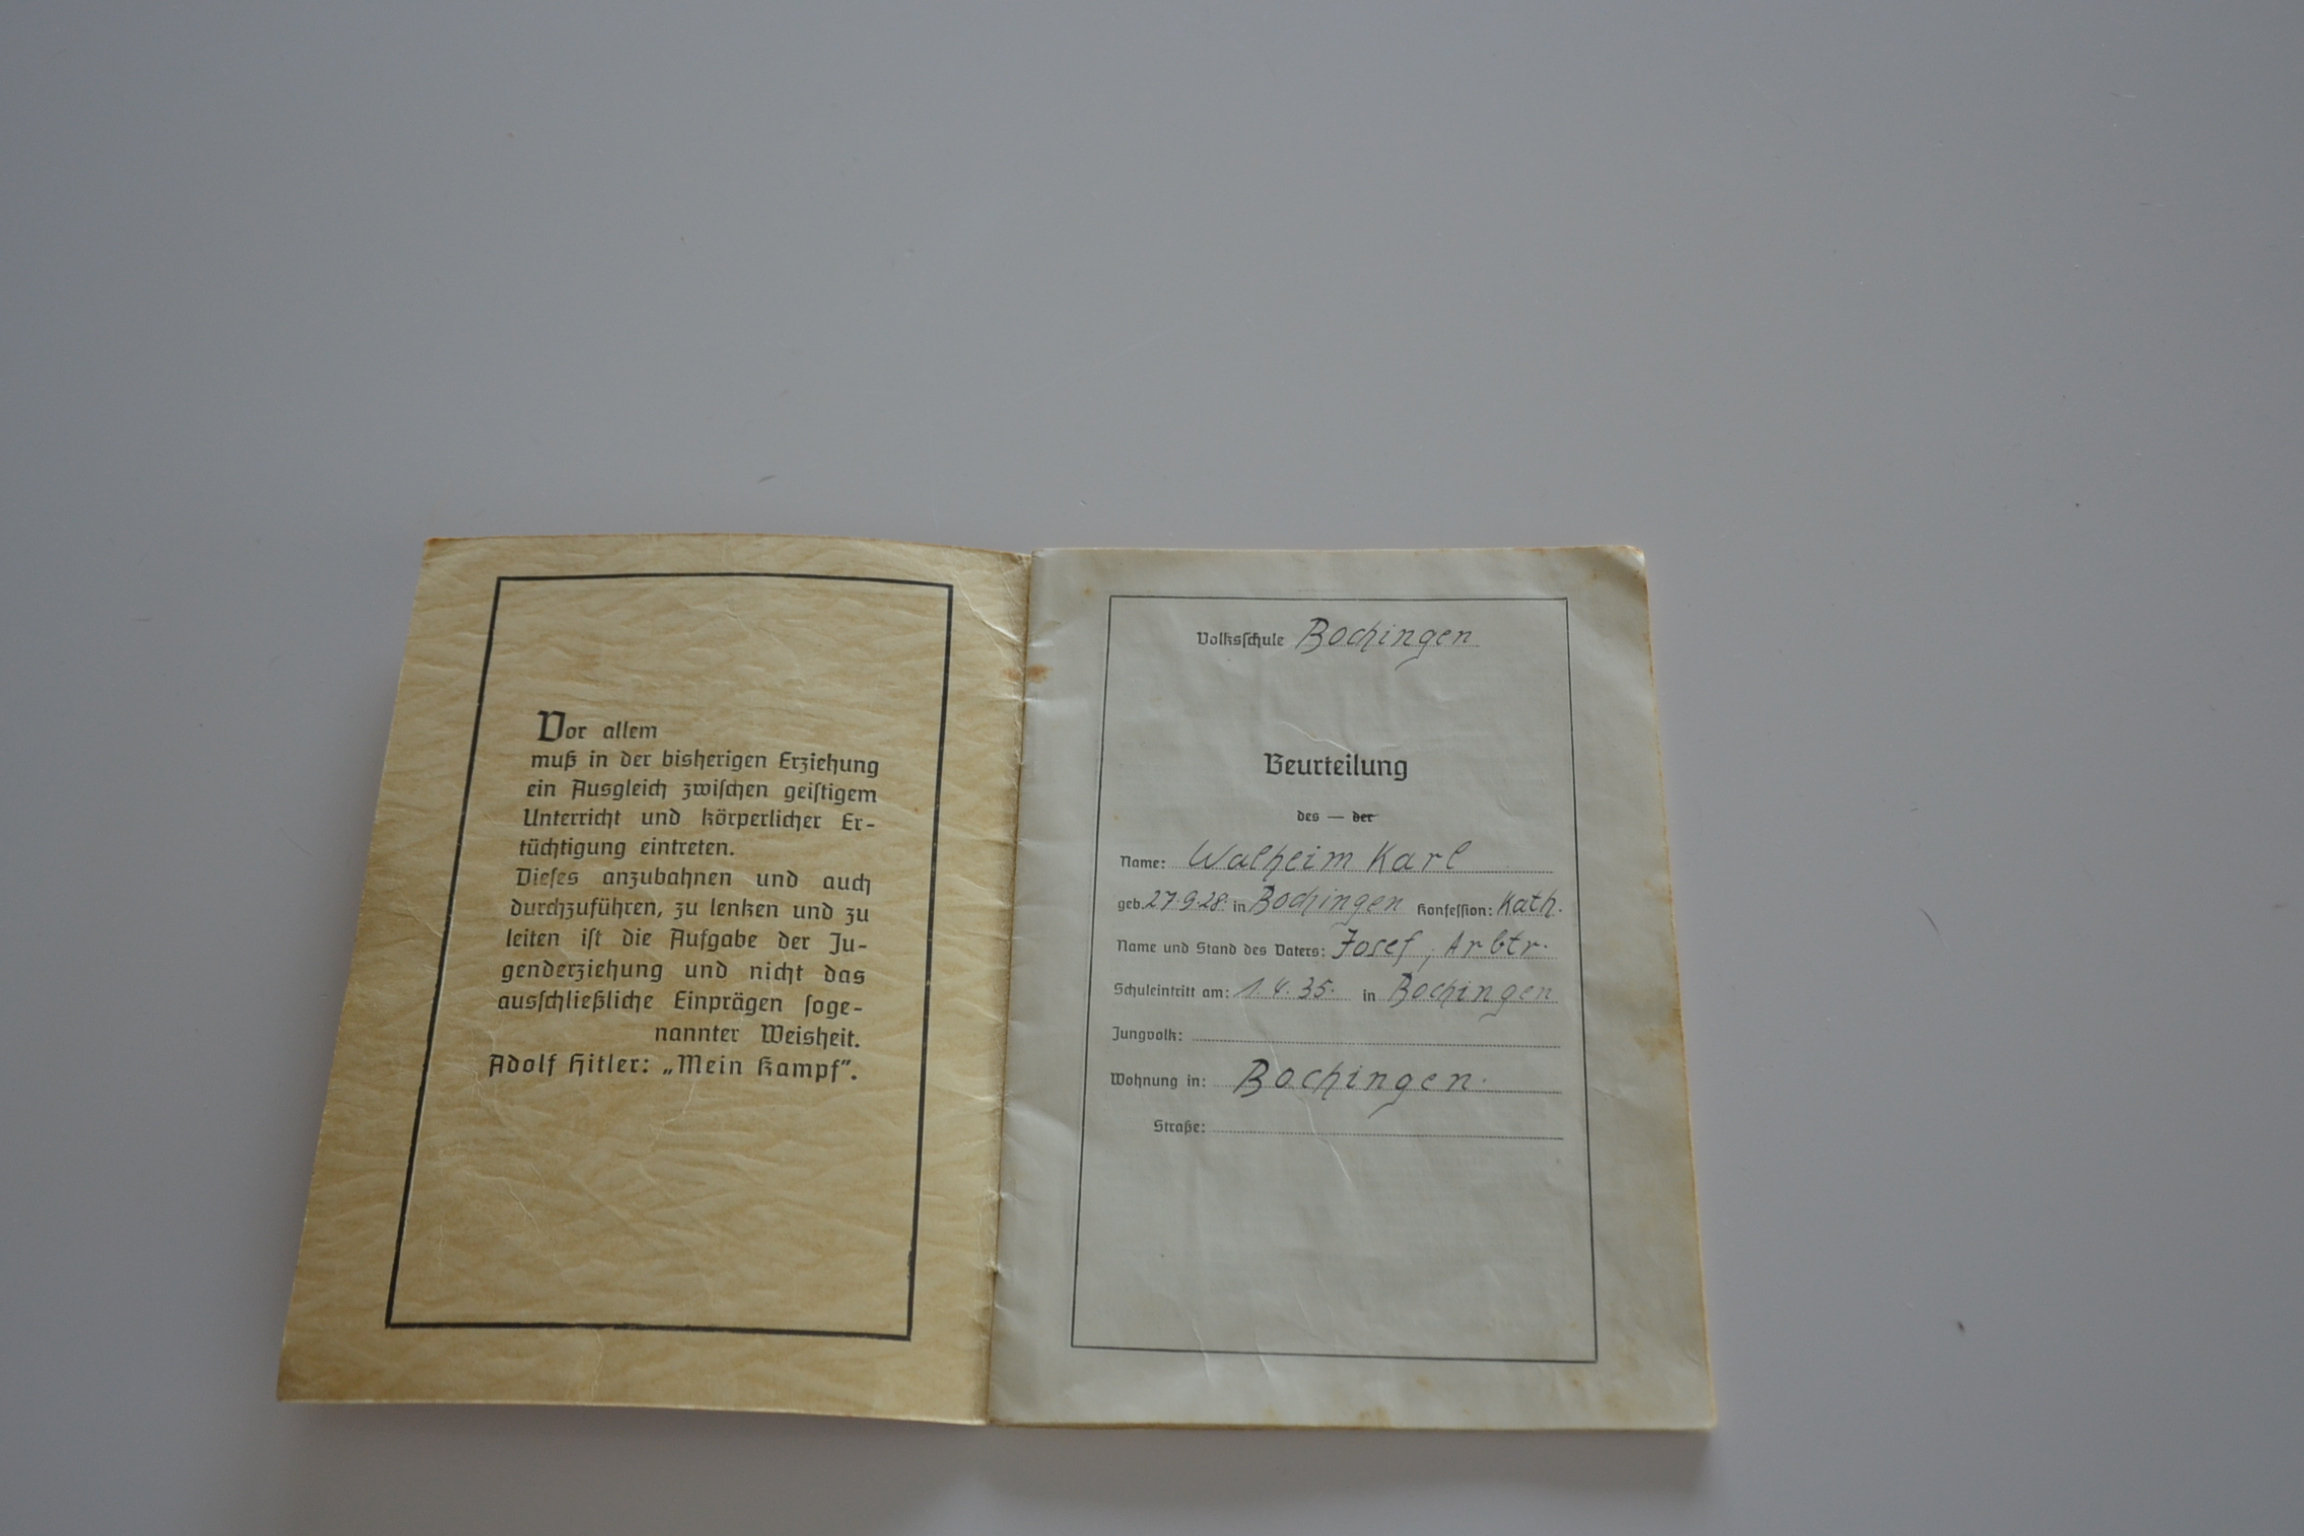 Vor allem
muß in der bisherigen Erziehung
ein Ausgleich zwischen geistigem
Unterricht und körperlicher Er-
tüchtigung eintreten.
Dieses anzubahnen und auch
durchzuführen, zu lenken und zu
leiten ist die Aufgabe der Ju-
genderziehung und nicht das
ausschließliche Einprägen soge-
nannter Weisheit.
Adolf Hitler: „Mein Kampf".
Volksschule Bochingen
Beurteilung
des — der
Name: Walheim Karl
geb. 27.9.28. in Bochingen Konfession: Kath.
Name und Stand des Vaters: Josef, Arbtr.
Schuleintritt am: 1.4.35. in Bochingen
Jungvolk:
Wohnung in: Bochingen.
Straße: